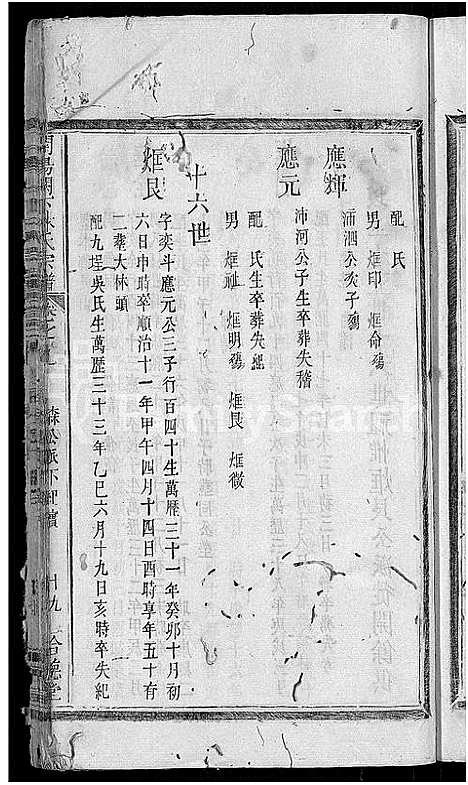 配氏
男烜印 烜命殤
應輝
浦泗公次子殤
應元
沛河公子生卒葬失稽
配氏生卒葬失紀
男烜祉 烜明殤 烜艮 烜微
十六世
烜艮
字奕斗應元公三子行百四十生萬歷三十一年癸卯十月初
六日申時卒順治十一年甲午四月十四日酉時享年五十有
二葬大林頭
配九埕吳氏生萬歷三十三年乙巳六月十九日亥時卒失紀
氏宗譜 卷之 森公派下 十九 合德堂